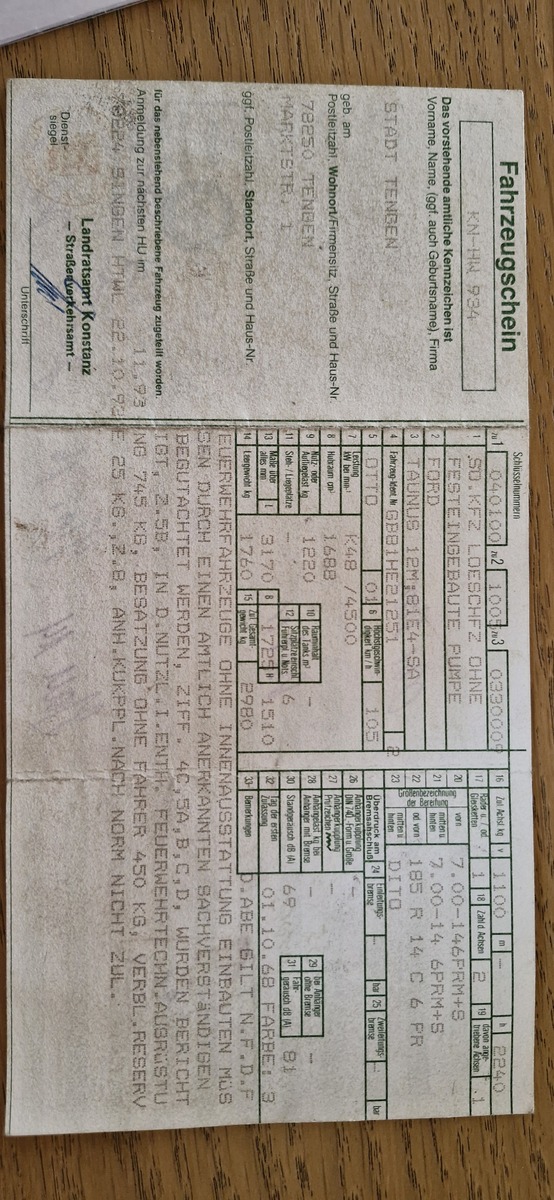 Fahrzeugschein
KN-HW 934
Das vorstehende amtliche Kennzeichen ist
Vorname, Name, (ggf. auch Geburtsname), Firma
STADT TENGEN
geb. am
Postleitzahl, Wohnort/Firmensitz, Straße und Haus-Nr.
78250 TENGEN
MARKTSTR. 1
ggf. Postleitzahl, Standort, Straße und Haus-Nr.
für das nebenstehend beschriebene Fahrzeug zugeteilt worden.
Anmeldung zur nächsten HU im 11.93
SINGEN HTWL 22.10.92
Dienst-
siegel
Landratsamt Konstanz
— Straßenverkehrsamt —
Unterschrift
Schlüsselnummern
zu 1 040100 zu 2 1005 zu 3 0330000
1 SO.KFZ LOESCHFZ OHNE
FESTEINGEBAUTE PUMPE
2 FORD
3 TAUNUS 12M,81E4-SA
4 Fahrzeug-Ident.-Nr. GBB1HE21251 2
5 OTTO 01 6 Höchstgeschwin-digkeit km/h 105
7 Leistung kW bei min⁻¹ K48 /4500
8 Hubraum cm³ 1688
9 Nutz- oder Aufliegelast kg 1220 10 Rauminhalt des Tanks m³ -
11 Steh-/Liegeplätze - 12 Sitzplätze einschl. Führerpl. u. Nots. 6
13 Maße über alles mm L 3170 B 1725 H 1510
14 Leergewicht kg 1760 15 Zul. Gesamt-gewicht kg 2980
16 Zul. Achsl. kg v 1100 m — h 2240
17 Räder u./od. Gleisketten 1 18 Zahl d. Achsen 2 19 davon ange-triebene Achsen 1
Größenbezeichnung der Bereifung
20 vorn 7.00-146PRM+S
21 mitten u. hinten 7.00-14 6PRM+S
22 od. vorn 185 R 14 C 6 PR
23 mitten u. hinten DITO
Überdruck am Bremsanschluß 24 Einleitungs-bremse — bar 25 Zweileitungs-bremse — bar
26 Anhängerkupplung DIN 740., Form u. Größe -
27 Anhängerkupplung Prüfzeichen -
28 Anhängelast kg bei Anhänger mit Bremse - 29 bei Anhänger ohne Bremse -
30 Standgeräusch dB (A) 69 31 Fahr-geräusch dB (A) 81
32 Tag der ersten Zulassung 01.10.68 FARBE: 3
33 Bemerkungen D.ABE GILT N.F.D.F
EUERWEHRFAHRZEUGE OHNE INNENAUSSTATTUNG EINBAUTEN MÜS
SEN DURCH EINEN AMTLICH ANERKANNTEN SACHVERSTÄNDIGEN
BEGUTACHTET WERDEN, ZIFF. 4C,5A,B,C,D, WURDEN BERICHT
IGT, Z.5B, IN D.NUTZL.I.ENTH. FEUERWEHRTECHN.AUSRÜSTU
NG 745 KG, BESATZUNG OHNE FAHRER 450 KG, VERBL.RESERV
E 25 KG.,Z.B, ANH.KUKPPL.NACH NORM NICHT ZUL.